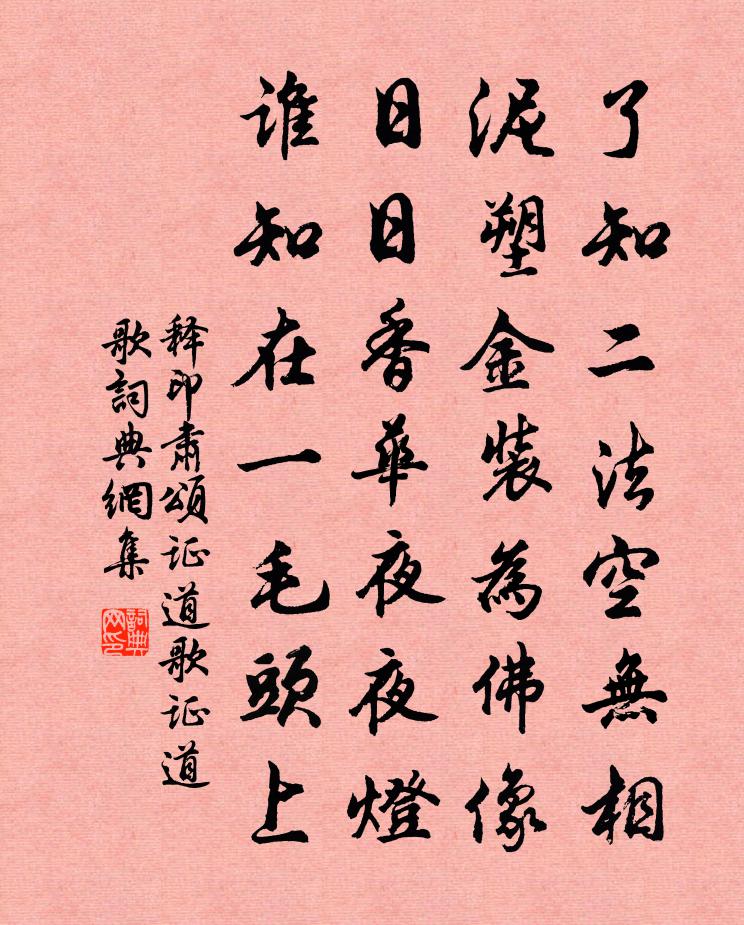 了知二法空無相
泥塑金裝為佛像
日日香華夜夜燈
谁知在一毛頭上
释印肃頌证道歌证道
歌詞典網集
詞典
网印